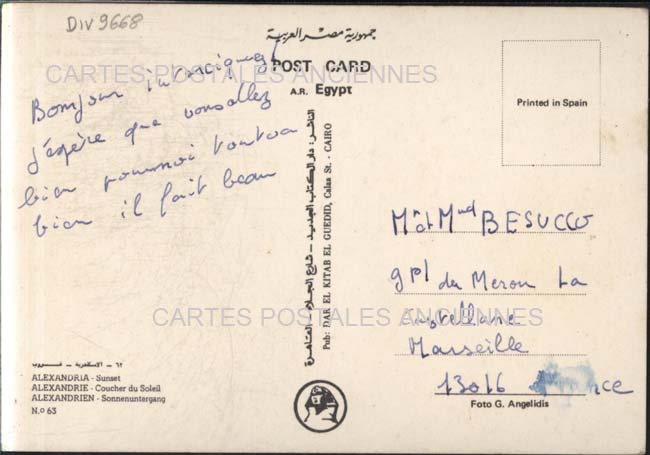 DIV 9668
جمهورية مصر العربية
POST CARD
A.R. Egypt
CARTES POSTALES ANCIENNES
Printed in Spain
Bonjour
j'espère que vous allez
bien pour moi tout va
bien il fait beau
الناشر: دار الكتاب الجديد - شارع الجلاء - القاهرة
Pub: DAR EL KITAB EL GUEDID, Calaa St. - CAIRO
M et Mme BESUCCO
gpl du Meron La
Castellane
Marseille
13016 France
CARTES POSTALES ANCIENNES
٦٢ - الاسكندرية - غروب
ALEXANDRIA - Sunset
ALEXANDRIE - Coucher du Soleil
ALEXANDRIEN - Sonnenuntergang
N.o 63
Foto G. Angelidis